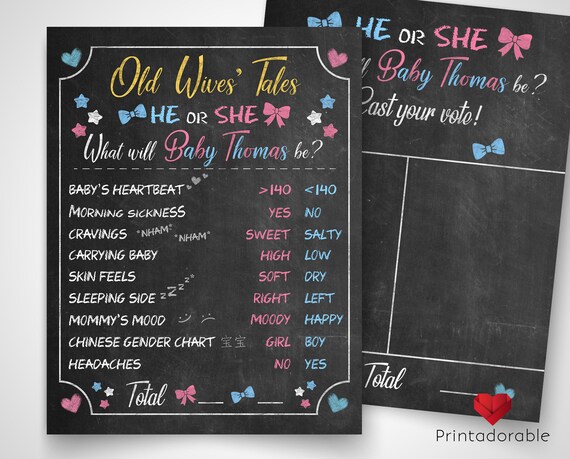 Old Wives' Tales
HE OR SHE
What will Baby Thomas be?
BABY'S HEARTBEAT >140 <140
MORNING SICKNESS YES NO
CRAVINGS *NHAM* *NHAM* SWEET SALTY
CARRYING BABY HIGH LOW
SKIN FEELS SOFT DRY
SLEEPING SIDE zzzz RIGHT LEFT
MOMMY'S MOOD MOODY HAPPY
CHINESE GENDER CHART 宝宝 GIRL BOY
HEADACHES NO YES
Total ___ ___
HE OR SHE
ll Baby Thomas be?
Cast your vote!
Total
Printadorable